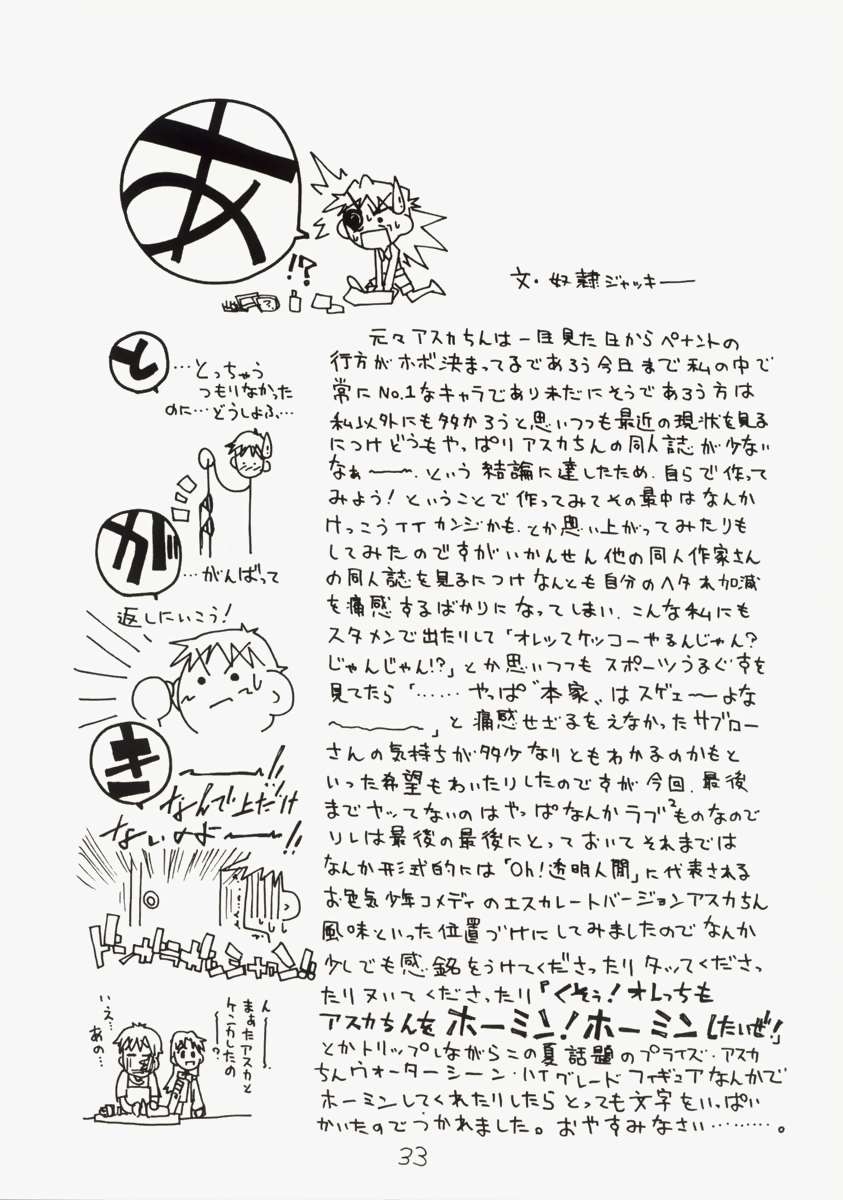 あ
!?
文・奴隷ジャッキー
元々アスカちんは一目見た日からペナントの
行方がホボ決まってるであろう今日まで私の中で
常にNo.1なキャラであり未だにそうであろう方は
私以外にも多かろうと思いつつも最近の現状を見る
につけどうもやっぱりアスカちんの同人誌が少ない
なぁ〜〜〜、という結論に達したため、自らで作って
みよう!ということで作ってみてその最中はなんか
けっこうイイカンジかも、とか思い上がってみたりも
してみたのですがいかんせん他の同人作家さん
の同人誌を見るにつけなんとも自分のヘタれ加減
を痛感するばかりになってしまい、こんな私にも
スタメンで出たりして「オレッてケッコーやるんじゃん?
じゃんじゃん!?」とか思いつつもスポーツうるぐすを
見てたら「……やっぱ〝本家〟はスゲェ〜〜よな
〜〜〜〜」と痛感せざるをえなかったサブロー
さんの気持ちが多少なりともわかるのかもと
いった希望もわいたりしたのですが今回、最後
までヤッてないのはやっぱなんかラブ²ものなので
ソレは最後の最後にとっておいてそれまでは
なんか形式的には「Oh!透明人間」に代表される
お色気少年コメディのエスカレートバージョンアスカちん
風味といった位置づけにしてみましたのでなんか
少しでも感銘をうけてくださったりタッてくださっ
たりヌいてくださったり『くそぅ!オレっちも
アスカちんをホーミン!ホーミンしたいぜ!』
とかトリップしながらこの夏話題のプライズ・アスカ
ちんウォーターシーン・ハイグレードフィギュアなんかで
ホーミンしてくれたりしたらとっても文字をいっぱい
かいたのでつかれました。おやすみなさい………。
と
…とっちゃう
つもりなかった
のに…どうしよふ…
が
…がんばって
返しにいこう!
き
〜〜!!
なんで上だけ
ないのよ〜〜!!
ん〜〜
まぁたアスカと
ケンカしたの
〜〜?
いえ…
あの…
33